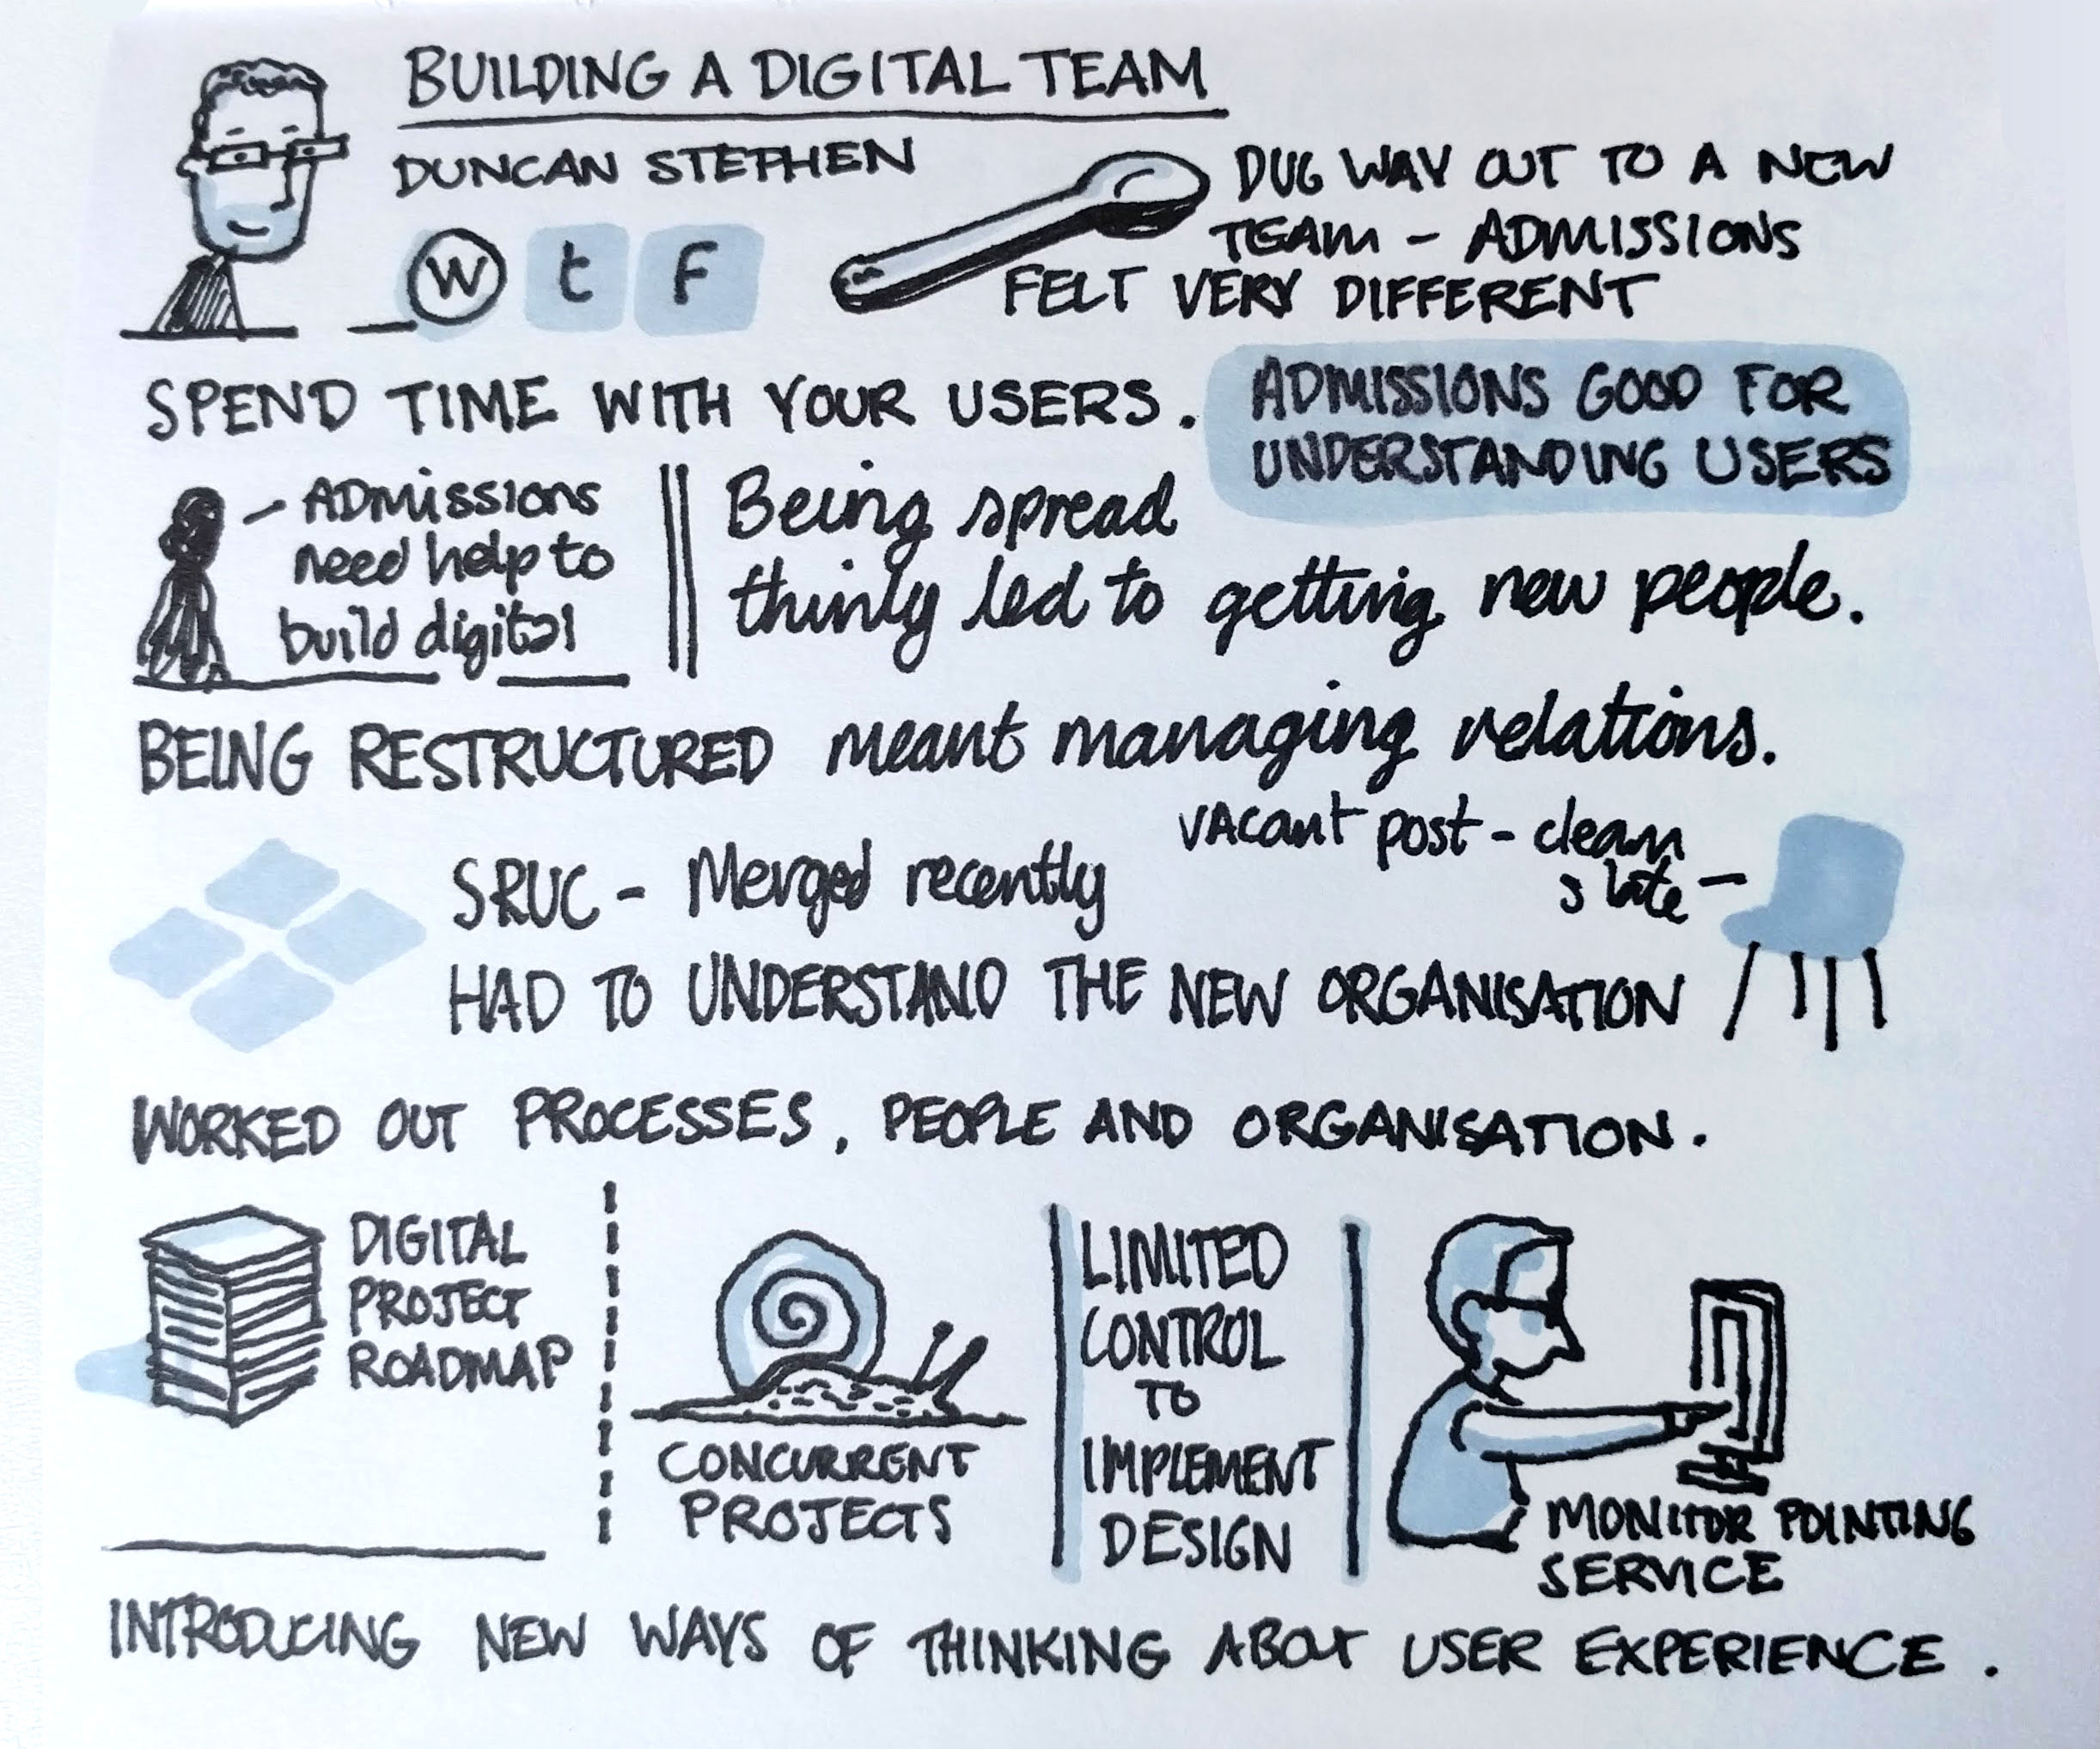 BUILDING A DIGITAL TEAM
DUNCAN STEPHEN
W t F
DUG WAY OUT TO A NEW
TEAM - ADMISSIONS
FELT VERY DIFFERENT
SPEND TIME WITH YOUR USERS.
ADMISSIONS GOOD FOR
UNDERSTANDING USERS
- ADMissions
need help to
build digital
Being spread
thinly led to getting new people.
BEING RESTRUCTURED meant managing relations.
VAcant post - clean
slate -
SRUC - Merged recently
HAD TO UNDERSTAND THE NEW ORGANISATION
WORKED OUT PROCESSES, PEOPLE AND ORGANISATION.
DIGITAL
PROJECT
ROADMAP
CONCURRENT
PROJECTS
LIMITED
CONTROL
TO
IMPLEMENT
DESIGN
MONITOR POINTING
SERVICE
INTRODUCING NEW WAYS OF THINKING ABOUT USER EXPERIENCE.